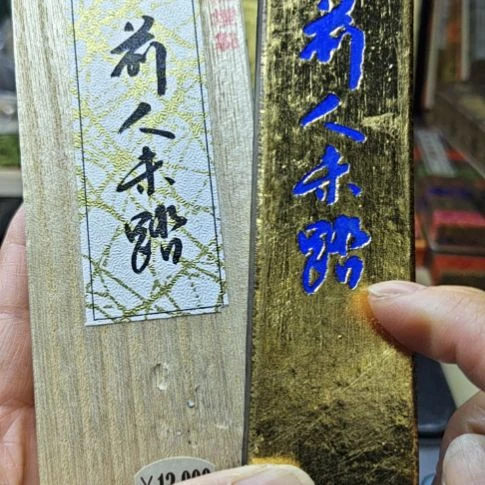 前人未踏
前人未踏
¥12,000